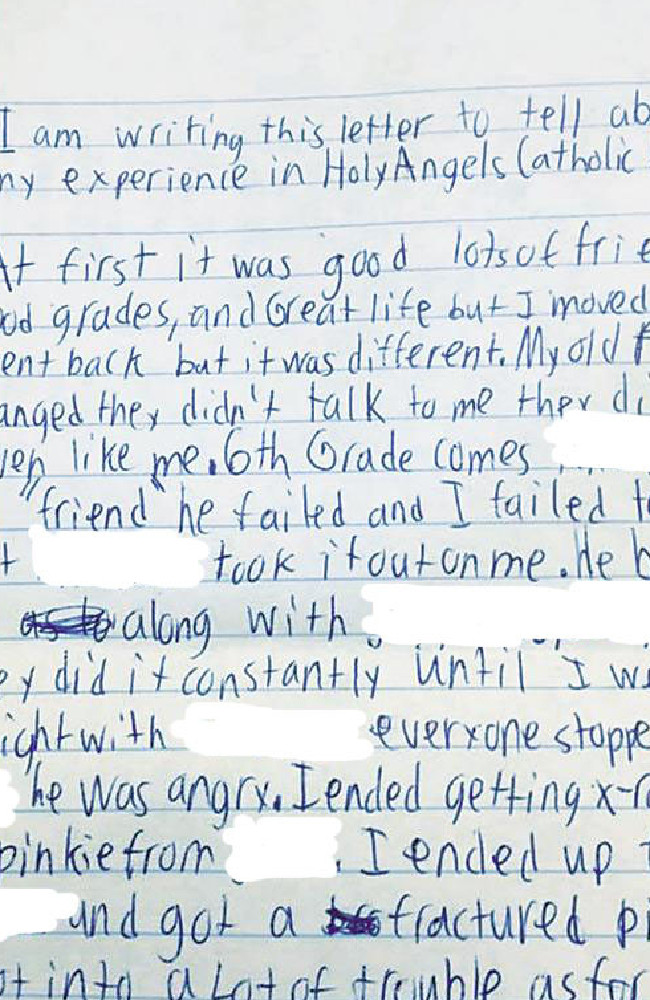 I am writing this letter to tell ab
ny experience in Holy Angels Catholic
At first it was good lots of frie
od grades, and Great life but I moved
ent back but it was different. My old f
anged they didn't talk to me they di
ven like me. 6th Grade comes
"friend" he failed and I failed to
t took it out on me. He b
along with
ey did it constantly until I wa
ight with everyone stoppe
he was angry. I ended getting x-ra
pinkie from . I ended up t
and got a fractured pi
ot into a Lot of trouble as for